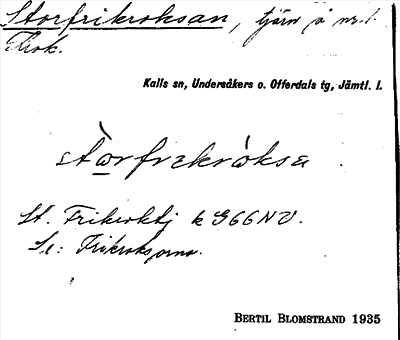 Storfrikroksan, tjärn å nr. 1.
Krok.
Kalls sn, Undersåkers o. Offerdals tg, Jämtl. l.
stòrfrekrokse.
St. Frikroktj k 966 NV.
Se: Frikroksjorna.
BERTIL BLOMSTRAND 1935